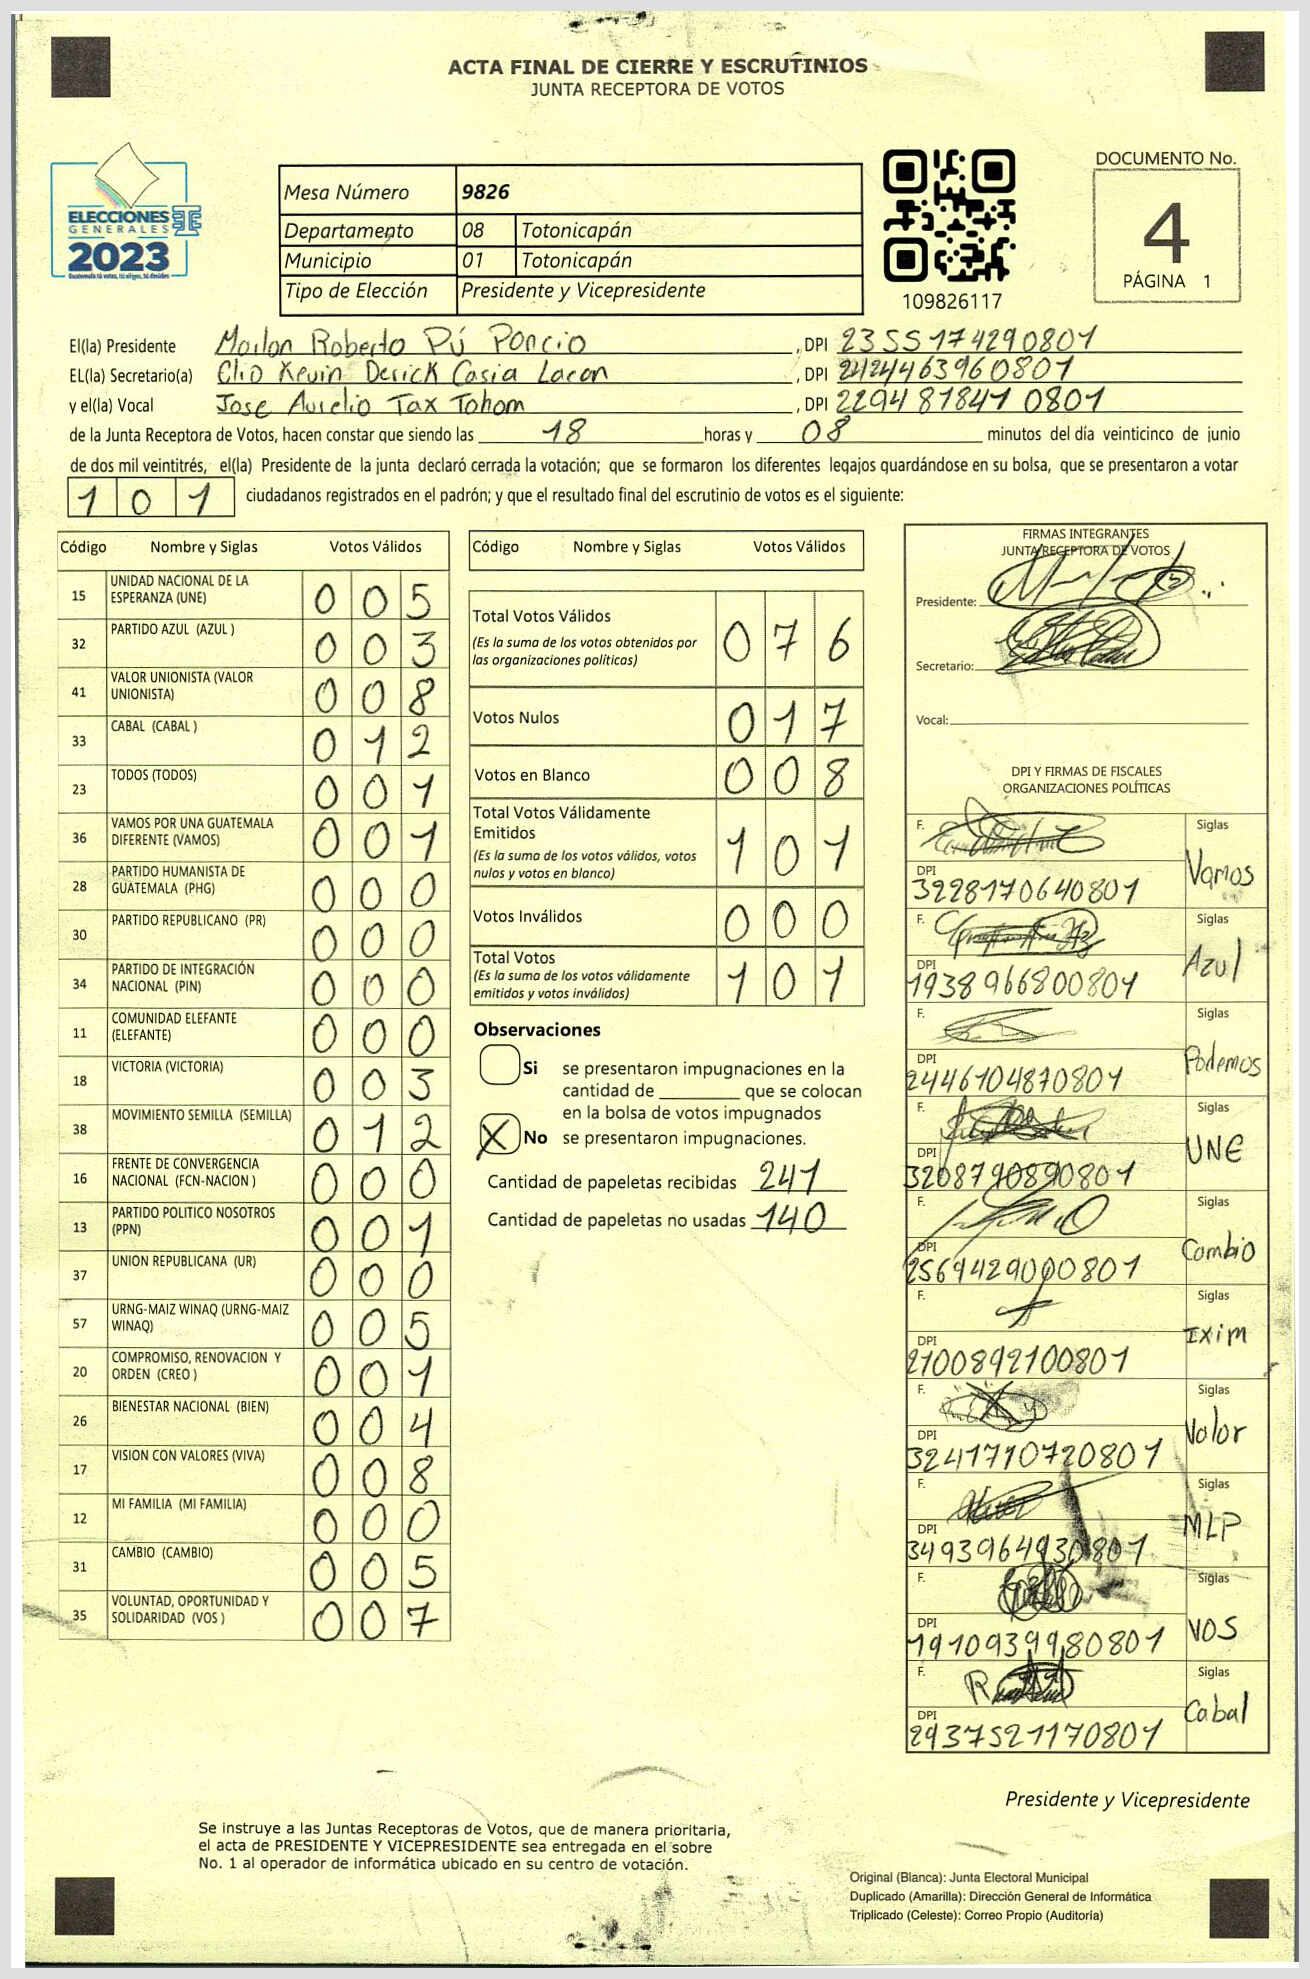 ACTA FINAL DE CIERRE Y ESCRUTINIOS
JUNTA RECEPTORA DE VOTOS
ELECCIONES
GENERALES
2023
Mesa Número 9826
Departamento 08 Totonicapán
Municipio 01 Totonicapán
Tipo de Elección Presidente y Vicepresidente
109826117
DOCUMENTO No.
4
PÁGINA 1
El(la) Presidente Marlon Roberto Pú Poncio, DPI 2355174290801
EL(la) Secretario(a) Clio Kevin Derick Casia Lacan, DPI 2424463960801
y el(la) Vocal Jose Aurelio Tax Tohom, DPI 2294818410801
de la Junta Receptora de Votos, hacen constar que siendo las 18 horas y 08 minutos del día veinticinco de junio
de dos mil veintitrés, el(la) Presidente de la junta declaró cerrada la votación; que se formaron los diferentes legajos guardándose en su bolsa, que se presentaron a votar
101 ciudadanos registrados en el padrón; y que el resultado final del escrutinio de votos es el siguiente:
Código Nombre y Siglas Votos Válidos
15 UNIDAD NACIONAL DE LA
ESPERANZA (UNE) 005
32 PARTIDO AZUL (AZUL ) 003
41 VALOR UNIONISTA (VALOR
UNIONISTA) 008
33 CABAL (CABAL ) 012
23 TODOS (TODOS) 001
36 VAMOS POR UNA GUATEMALA
DIFERENTE (VAMOS) 001
28 PARTIDO HUMANISTA DE
GUATEMALA (PHG) 000
30 PARTIDO REPUBLICANO (PR) 000
34 PARTIDO DE INTEGRACIÓN
NACIONAL (PIN) 000
11 COMUNIDAD ELEFANTE
(ELEFANTE) 000
18 VICTORIA (VICTORIA) 003
38 MOVIMIENTO SEMILLA (SEMILLA) 012
16 FRENTE DE CONVERGENCIA
NACIONAL (FCN-NACION ) 000
13 PARTIDO POLITICO NOSOTROS
(PPN) 001
37 UNION REPUBLICANA (UR) 000
57 URNG-MAIZ WINAQ (URNG-MAIZ
WINAQ) 005
20 COMPROMISO, RENOVACION Y
ORDEN (CREO ) 001
26 BIENESTAR NACIONAL (BIEN) 004
17 VISION CON VALORES (VIVA) 008
12 MI FAMILIA (MI FAMILIA) 000
31 CAMBIO (CAMBIO) 005
35 VOLUNTAD, OPORTUNIDAD Y
SOLIDARIDAD (VOS ) 007
Código Nombre y Siglas Votos Válidos
Total Votos Válidos 076
(Es la suma de los votos obtenidos por
las organizaciones políticas)
Votos Nulos 017
Votos en Blanco 008
Total Votos Válidamente
Emitidos 101
(Es la suma de los votos válidos, votos
nulos y votos en blanco)
Votos Inválidos 000
Total Votos 101
(Es la suma de los votos válidamente
emitidos y votos inválidos)
Observaciones
Si se presentaron impugnaciones en la
cantidad de ________ que se colocan
en la bolsa de votos impugnados
X No se presentaron impugnaciones.
Cantidad de papeletas recibidas 241
Cantidad de papeletas no usadas 140
FIRMAS INTEGRANTES
JUNTA RECEPTORA DE VOTOS
Presidente:
Secretario:
Vocal:
DPI Y FIRMAS DE FISCALES
ORGANIZACIONES POLÍTICAS
F. Siglas
DPI Vamos
3228170640801
F. Siglas
DPI Azul
1938966800801
F. Siglas
DPI Podemos
2446104870801
F. Siglas
DPI UNE
3208790890801
F. Siglas
DPI Cambio
2569429000801
F. Siglas
DPI Ixim
2100892100801
F. Siglas
DPI Valor
3241710720801
F. Siglas
DPI MLP
3493964930801
F. Siglas
DPI VOS
1910939980801
F. Siglas
DPI Cabal
2937521170801
Presidente y Vicepresidente
Se instruye a las Juntas Receptoras de Votos, que de manera prioritaria,
el acta de PRESIDENTE Y VICEPRESIDENTE sea entregada en el sobre
No. 1 al operador de informática ubicado en su centro de votación.
Original (Blanca): Junta Electoral Municipal
Duplicado (Amarilla): Dirección General de Informática
Triplicado (Celeste): Correo Propio (Auditoría)